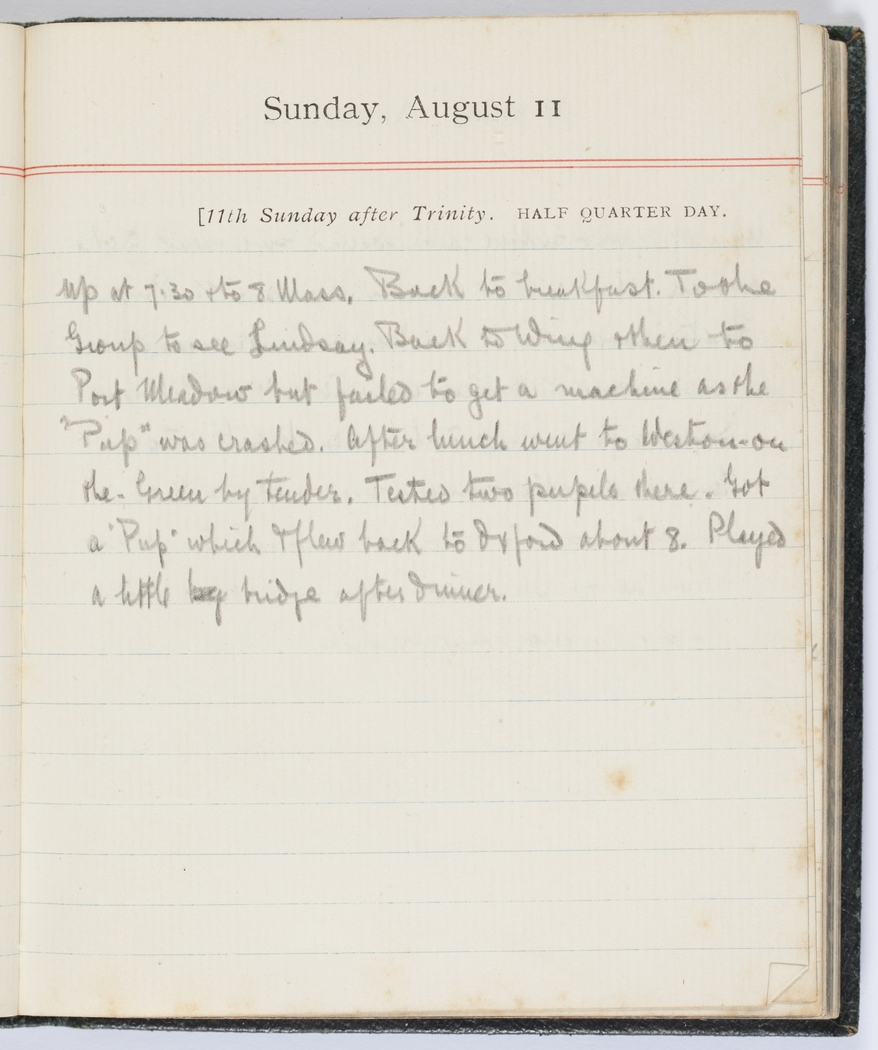 Sunday, August 11
[11th Sunday after Trinity. HALF QUARTER DAY.
Up at 7.30 & to 8 Mass. Back to breakfast. To the
Group to see Lindsay. Back to Wing & then to
Port Meadow but failed to get a machine as the
"Pup" was crashed. After lunch went to Weston-on
the-Green by tender. Tested two pupils there. Got
a "Pup" which I flew back to Oxford about 8. Played
a little bridge after dinner.